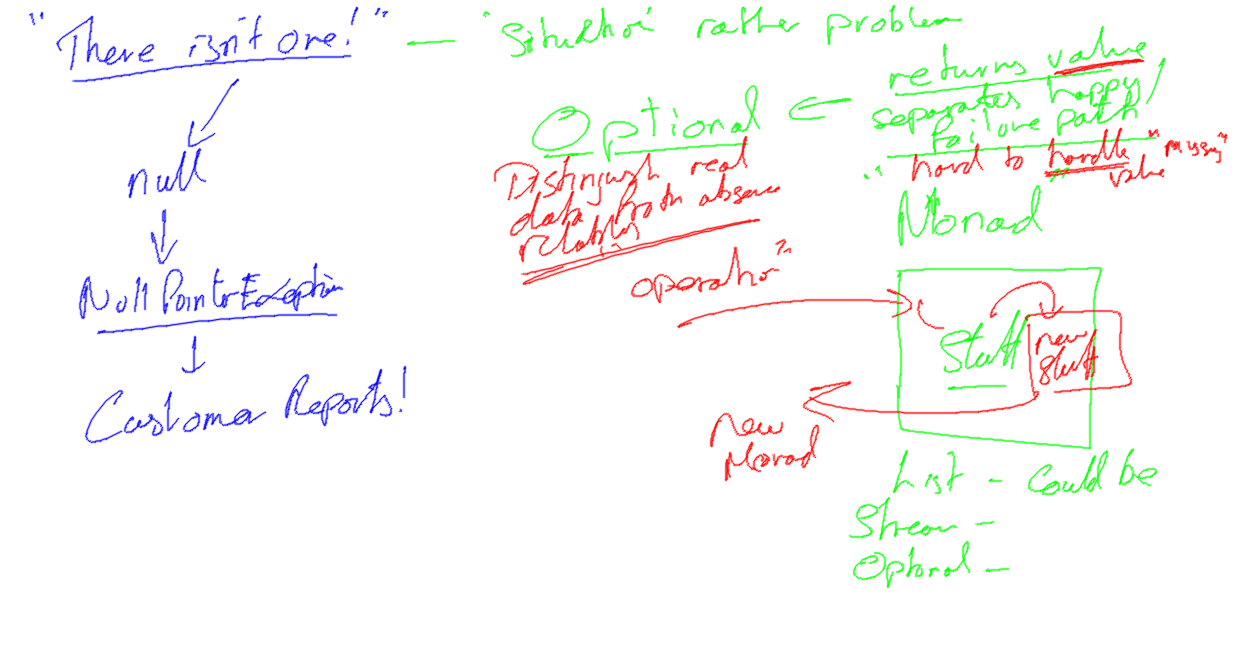 "There isn't one!" — 'Situation' rather problem
null
NullPointerException
Customer Reports!
Optional ←
returns value
separates happy/
failure path
"hard to handle "missing"
value
Distinguish real
data from absence
reliably
"Monad"
operation"
Stuff
new
Stuff
new
Monad
List - could be
Stream -
Optional -